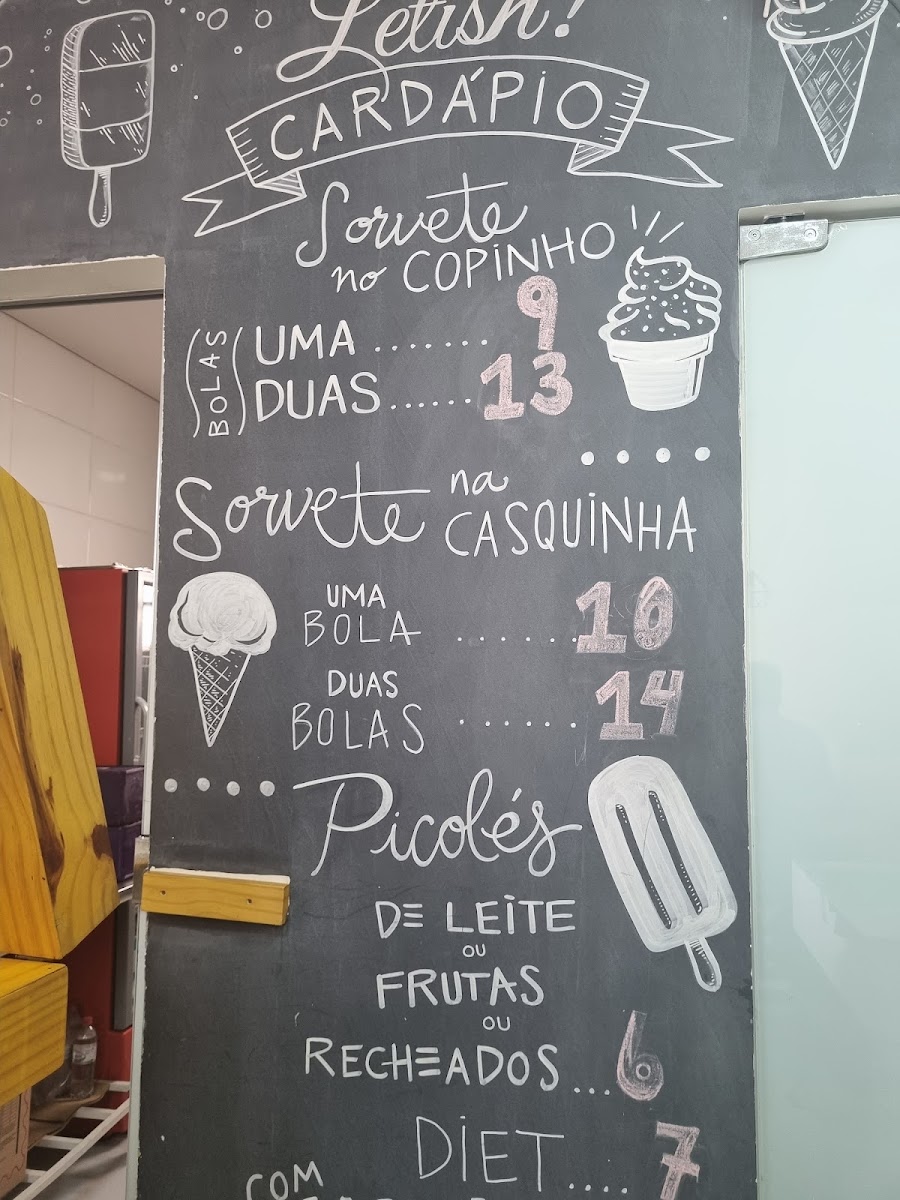 Letish!
CARDÁPIO
Sorvete
no COPINHO
BOLAS
UMA ........ 9
DUAS ...... 13
Sorvete na
CASQUINHA
UMA
BOLA ....... 10
DUAS
BOLAS ....... 14
Picolés
DE LEITE
OU
FRUTAS
OU
RECHEADOS ... 6
DIET .... 7
COM